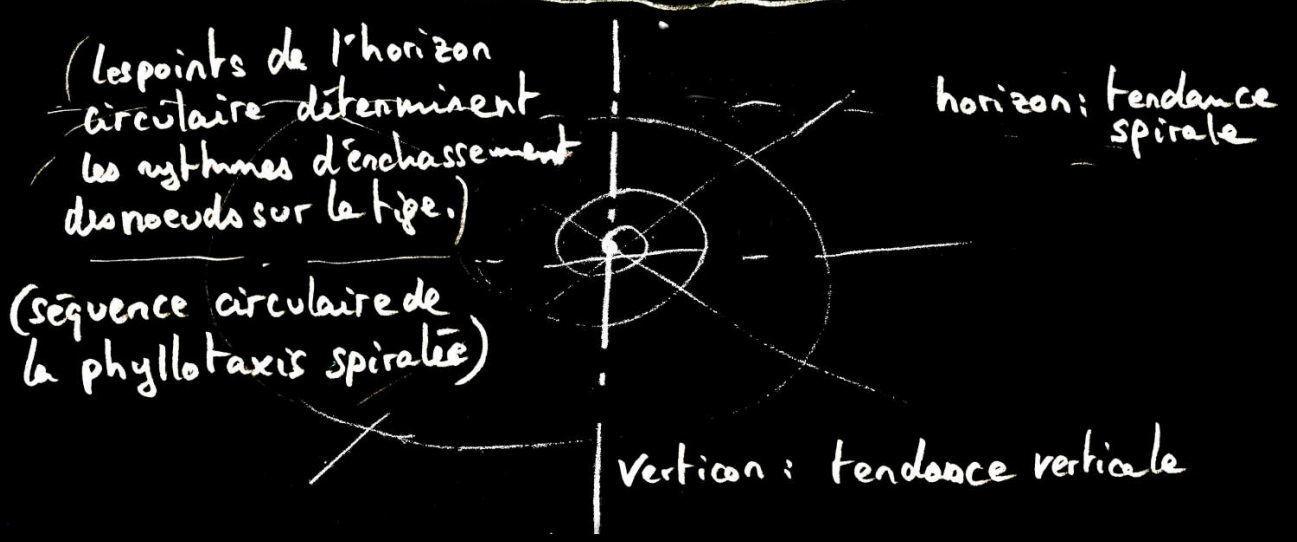 (les points de l'horizon
circulaire déterminent
les rythmes d'enchassement
des noeuds sur la tige.)
(séquence circulaire de
la phyllotaxis spiralée)
horizon: tendance
spirale
verticon : tendance verticale